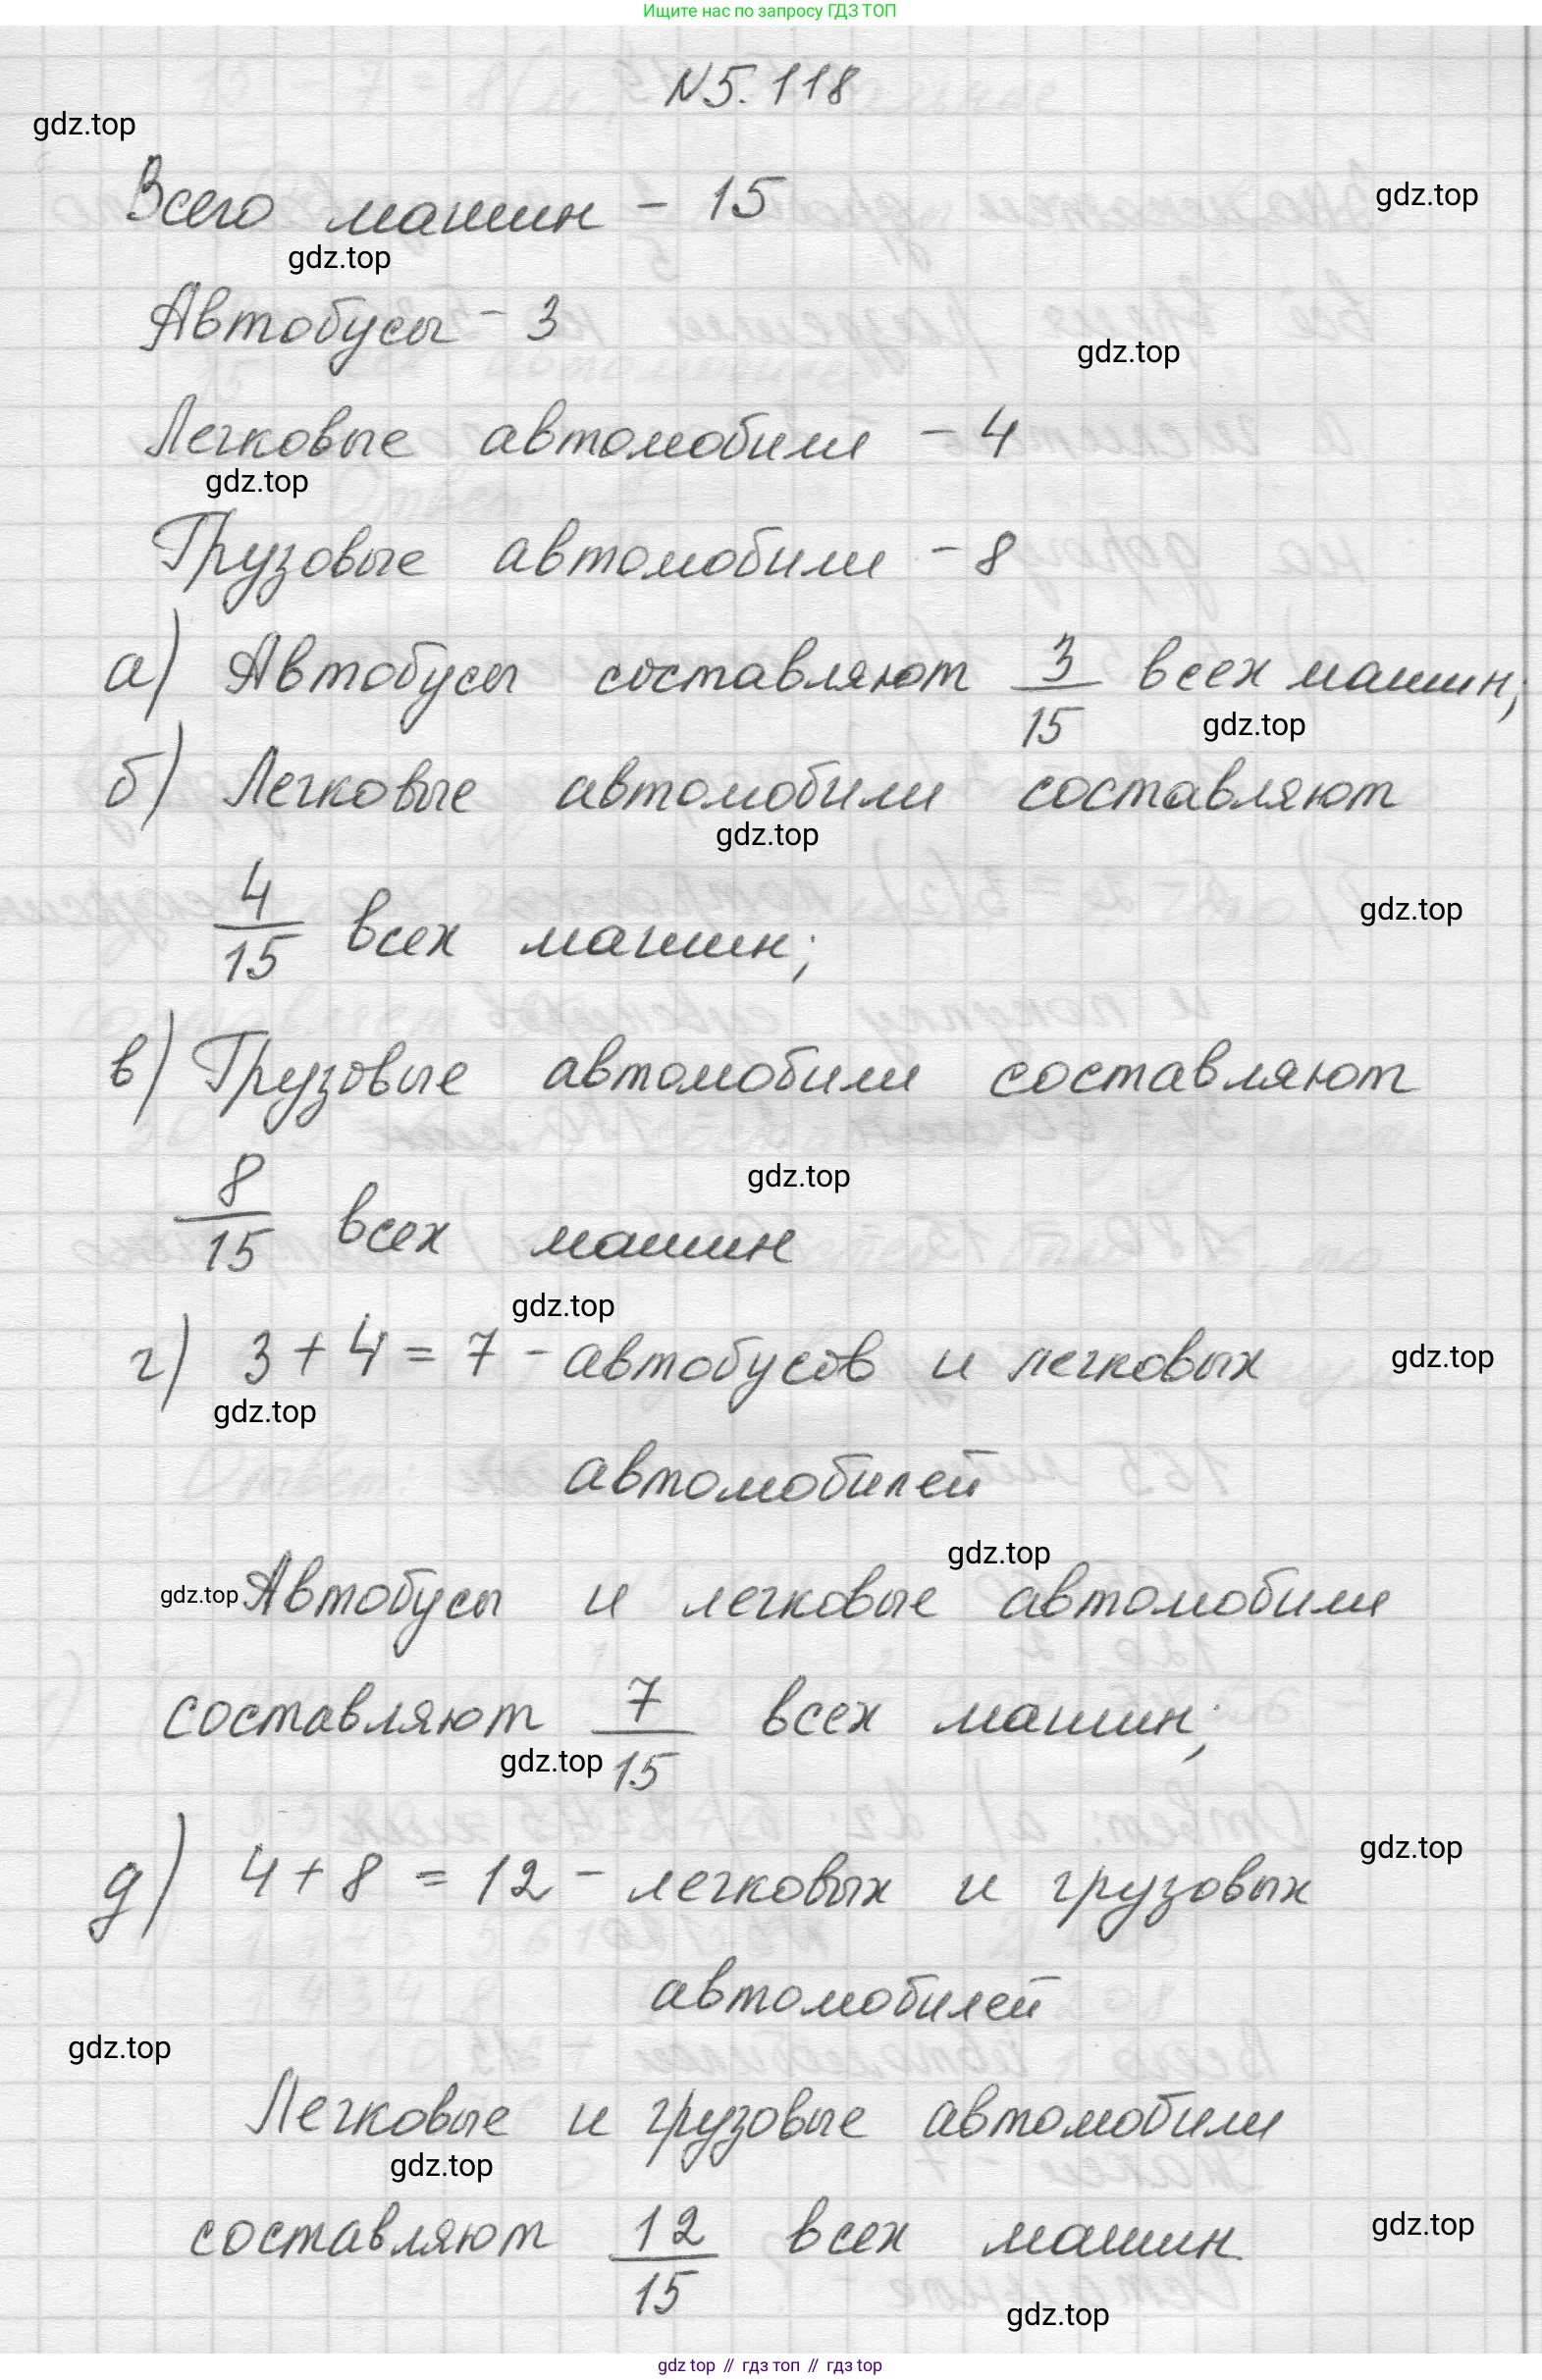 Ищите нас по запросу ГДЗ ТОП
N5.118
gdz.top
Всего машин - 15
gdz.top
gdz.top
Автобусы - 3
gdz.top
Легковые автомобили - 4
gdz.top
Грузовые автомобили - 8
а) Автобусы составляют 3/15 всех машин;
gdz.top
б) Легковые автомобили составляют
gdz.top
4/15 всех машин;
gdz.top
в) Грузовые автомобили составляют
gdz.top
8/15 всех машин
gdz.top
г) 3 + 4 = 7 - автобусов и легковых
gdz.top
gdz.top
автомобилей
gdz.top
gdz.top Автобусы и легковые автомобили
составляют 7/15 всех машин;
gdz.top
gdz.top
д) 4 + 8 = 12 - легковых и грузовых
автомобилей
gdz.top
Легковые и грузовые автомобили
gdz.top
составляют 12/15 всех машин
gdz.top
gdz.top
gdz top // гдз топ // гдз top